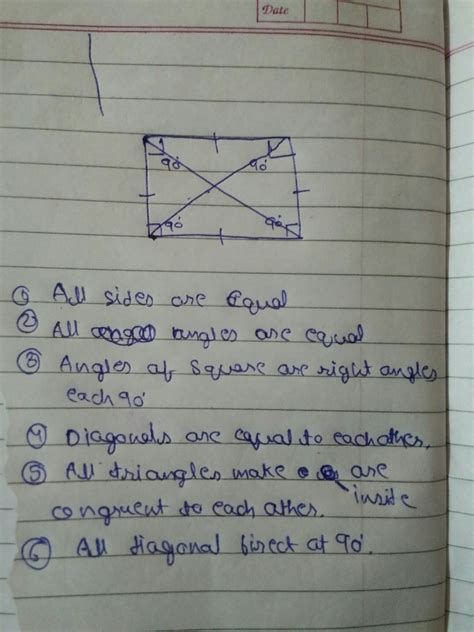 Date
90°
90°
90°
90°
① All sides are Equal
② All angles are equal
③ Angles of Square are right angles
each 90°
④ Diagonals are equal to eachother.
⑤ All triangles make are
inside
congruent to each other.
⑥ All diagonal bisect at 90°.